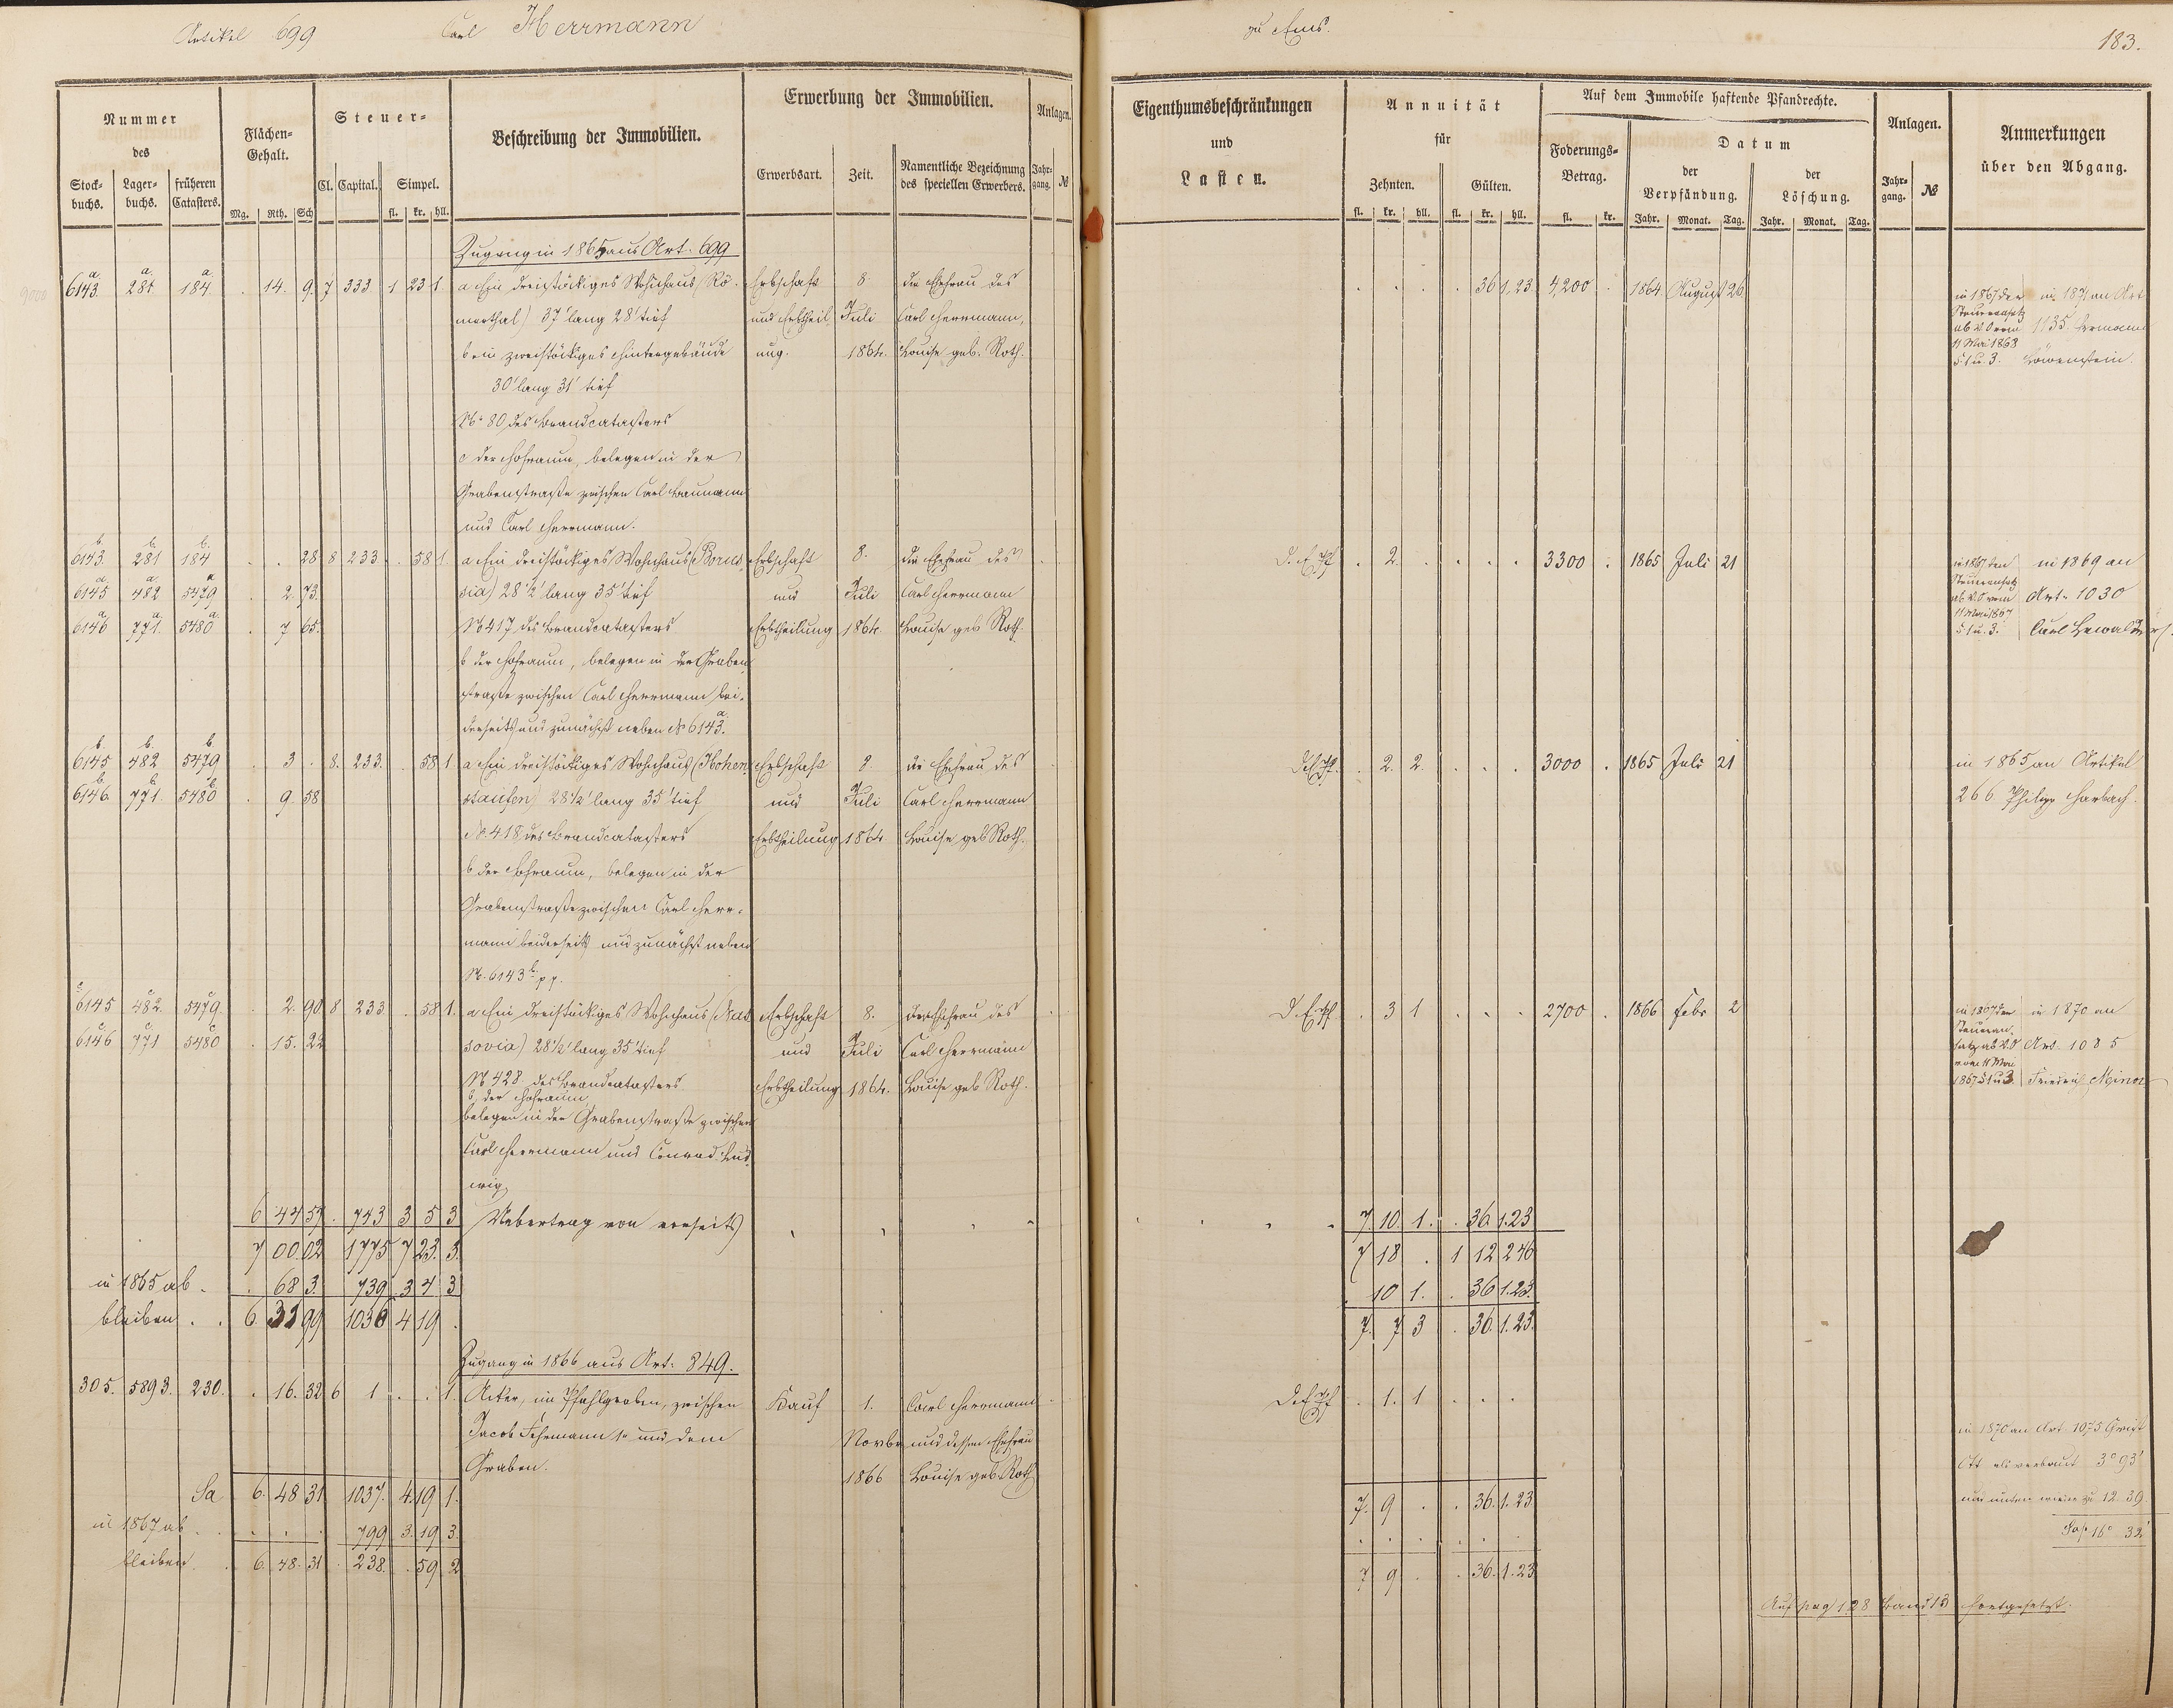 Artikel 699 Carl Herrmann zu Ems. 183.
Nummer des
Stockbuchs. Lagerbuchs. früheren Catasters.
Flächen-Gehalt.
Mg. Rth. Sch
Steuer-
Cl. Capital. Simpel.
fl. kr. hll.
Beschreibung der Immobilien.
Erwerbung der Immobilien.
Erwerbsart. Zeit. Namentliche Bezeichnung des speciellen Erwerbers.
Anlagen.
Jahrgang. №
Eigenthumsbeschränkungen und Lasten.
Annuität für
Zehnten. Gülten.
fl. kr. hll. fl. kr. hll.
Auf dem Immobile haftende Pfandrechte.
Foderungs-Betrag.
fl. kr.
Datum
der Verpfändung. der Löschung.
Jahr. Monat. Tag. Jahr. Monat. Tag.
Anlagen.
Jahrgang. №
Anmerkungen über den Abgang.
Zugang in 1865 aus Art. 699
6143.a 281a 184a . 14. 9. 7 333 1 23 1 a Ein dreistöckiges Wohnhaus (Rö- Erbschaft 8. die Ehefrau des . . . . 36 1.23 4,200 . 1864 August 26
merthal) 37' lang 28' tief und Erbtheil Juli Carl Herrmann,
b ein zweistöckiges Hintergebäude ung. 1864. Louise geb. Roth.
30' lang 31' tief
№ 80 des Brandcatasters
c der Hofraum, belegen in der
Grabenstraße zwischen Carl Baumann
und Carl Herrmann.
in 1867 der Steueransatz ab V.O vom 11 Mai 1868 § 1 u. 3.
in 1871 an Art
1135. Hermann
Löwenstein.
6143.b 281b 184b . . 28 8 233 . 58 1. a Ein dreistöckiges Wohnhaus (Borus- Erbschaft 8. die Ehefrau des . 2. . . . . 3300 . 1865 Juli 21
6145a 482a 5479a . 2. 73. sia) 28 1/2' lang 35' tief und Juli Carl Herrmann
6146a 771.a 5480a . 7 65. № 417 des Brandcatasters Erbtheilung 1864. Louise geb Roth.
b der Hofraum, belegen in der Graben
straße zwischen Carl Herrmann bei-
derseits und zunächst neben № 6143.a
in 1867 den Steueransatz ab V.O vom 11 Mai 1867 § 1 u. 3.
in 1869 an
Art. 1030
6145b 482b 5479b . 3 . 8. 233. . 58 1 a Ein dreistöckiges Wohnhaus (Hohen- Erbschaft 8. die Ehefrau des . 2. 2. . . . 3000 . 1865 Juli 21
6146.b 771.b 5480b . 9. 58 staufen) 28 1/2' lang 35' tief und Juli Carl Herrmann
№ 418 des Brandcatasters Erbtheilung 1864 Louise geb Roth.
b der Hofraum, belegen in der
Grabenstraße zwischen Carl Herr-
mann beiderseits und zunächst neben
№ 6143b pp.
in 1865 an Artikel
266 Philipp Harbach.
6145c 482.c 5479c . 2. 90 8 233 . 58 1. a Ein dreistöckiges Wohnhaus (Nas Erbschaft 8. der Ehefrau des . 3 1 . . . 2700 . 1866 Febr 2
6146c 771c 5480c . 15. 22 sovia) 28 1/2' lang 35' tief und Juli Carl Herrmann
№ 428 des Brandcatasters Erbtheilung 1864. Louise geb Roth.
b, der Hofraum,
belegen in der Grabenstraße zwischen
Carl Herrmann und Conrad Lud
wig.
in 1867 der Steueransatz ab V.O vom 11 Mai 1867 § 1 u 3
in 1870 an
Art. 1085
Friedrich
6 44 57 . 743 3 5 3 Uebertrag von vorseits 7. 10. 1. . 36. 1.23
7 00.02 1775 7 23. 3. 7 18 . 1 12 246
in 1865 ab . . 68 3. 739 3 4 3 . 10 1. . 36 1.23.
bleiben . . 6. 31 99 1036 4 19 . 7. 7 3 . 36. 1.23.
Zugang in 1866 aus Art. 849.
305. 5893. 230. . 16. 32 6 1 . . 1. Acker, im Pfahlgraben, zwischen Kauf 1. Carl Herrmann . 1. 1 . . .
Jacob Fehrmann 1r und dem Novbr und dessen Ehefrau
Graben. 1866 Louise geb. Roth
in 1870 an Art 1075
Ott als verkauft 3° 93'
12 39
16° 32'
Sa 6. 48 31 1037. 4. 19 1. 7. 9 . . 36. 1.23
in 1867 ab . . . . 799 3. 19 3.
bleiben . 6. 48. 31 . 238. . 59 2 7 9 . . 36. 1.23
Auf pag 128 Band 13 fortgesetzt.